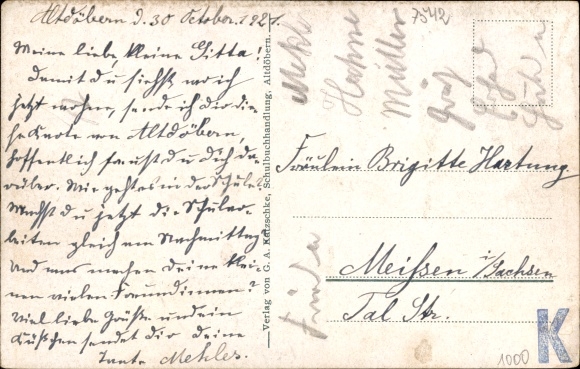 Altdöbern d. 30 October. 1921.
Meine liebe, kleine Gitta!
Damit du siehst wo ich
jetzt wohne, sende ich dir die-
se Karte von Altdöbern,
hoffentlich freust du dich da-
rüber. Wie geht es in der Schule?
Machst du jetzt die Schular-
beiten gleich am Nachmittag
Und was machen deine klei-
nen vielen Freundinnen?
Viel liebe Grüße und ein
Küßchen sendet dir deine
Tante Mehler.
Verlag von G. A. Katzschke, Schulbuchhandlung, Altdöbern.
7542
Hahne
Müller
Fräulein Brigitte Hartung.
Meißen i/Sachsen
Tal Str.
1000
K